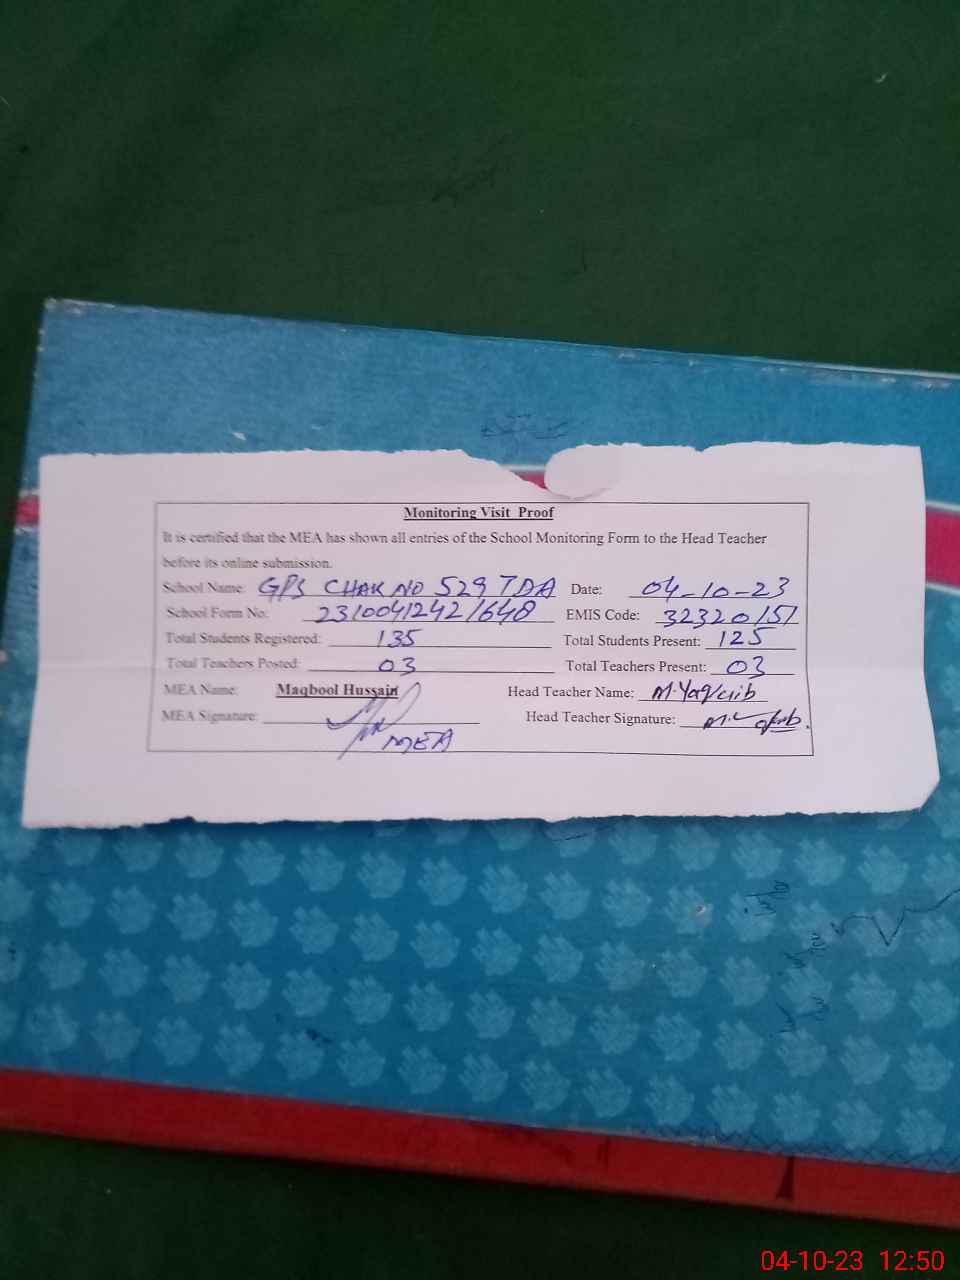 Monitoring Visit Proof
It is certified that the MEA has shown all entries of the School Monitoring Form to the Head Teacher
before its online submission.
School Name: GPS CHAK NO 529 TDA Date: 04-10-23
School Form No: 23100412421648 EMIS Code: 32320151
Total Students Registered: 135 Total Students Present: 125
Total Teachers Posted: 03 Total Teachers Present: 03
MEA Name: Maqbool Hussain Head Teacher Name: M.Yaqub
MEA Signature: Head Teacher Signature:
MEA
04-10-23 12:50